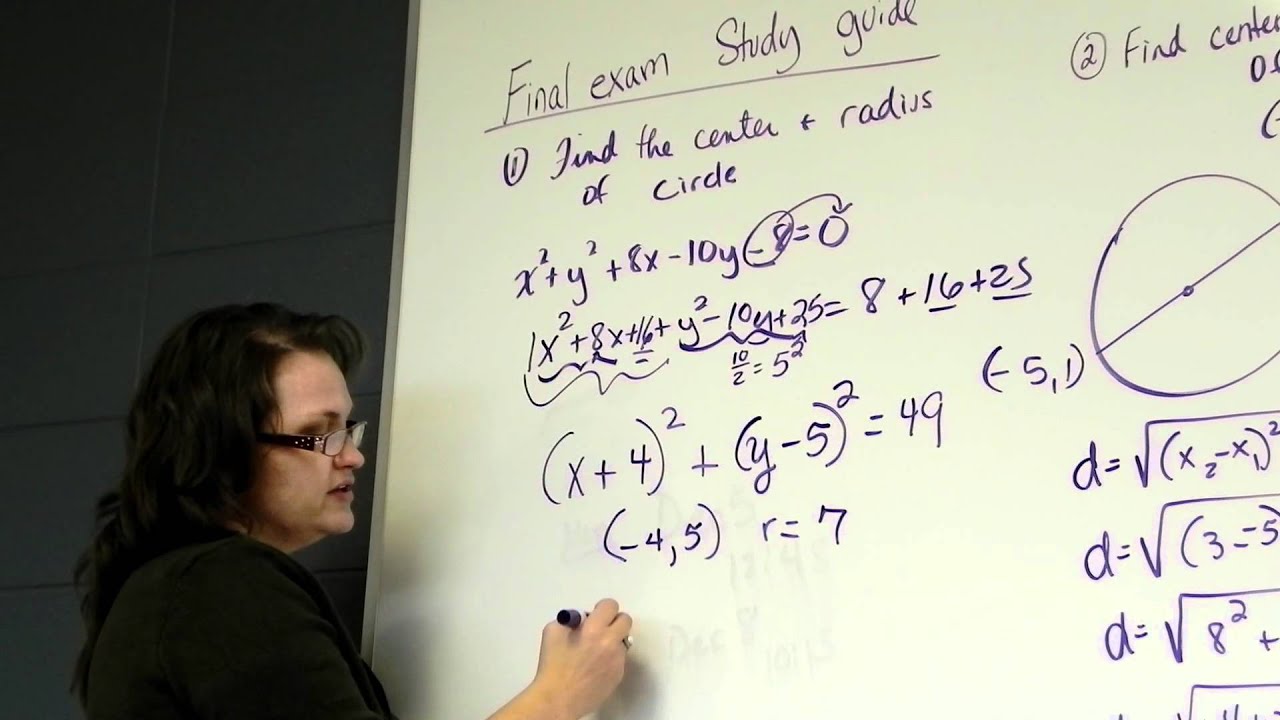 Final exam Study guide
① Find the center + radius
of circle
x² + y² + 8x - 10y - 8 = 0
1x² + 8x + 16 + y² - 10y + 25 = 8 + 16 + 25
10/2 = 5²
(x + 4)² + (y - 5)² = 49
(-4, 5) r = 7
② Find center
(-5, 1)
d = √(x₂ - x₁)²
d = √(3 - -5)
d = √8² +